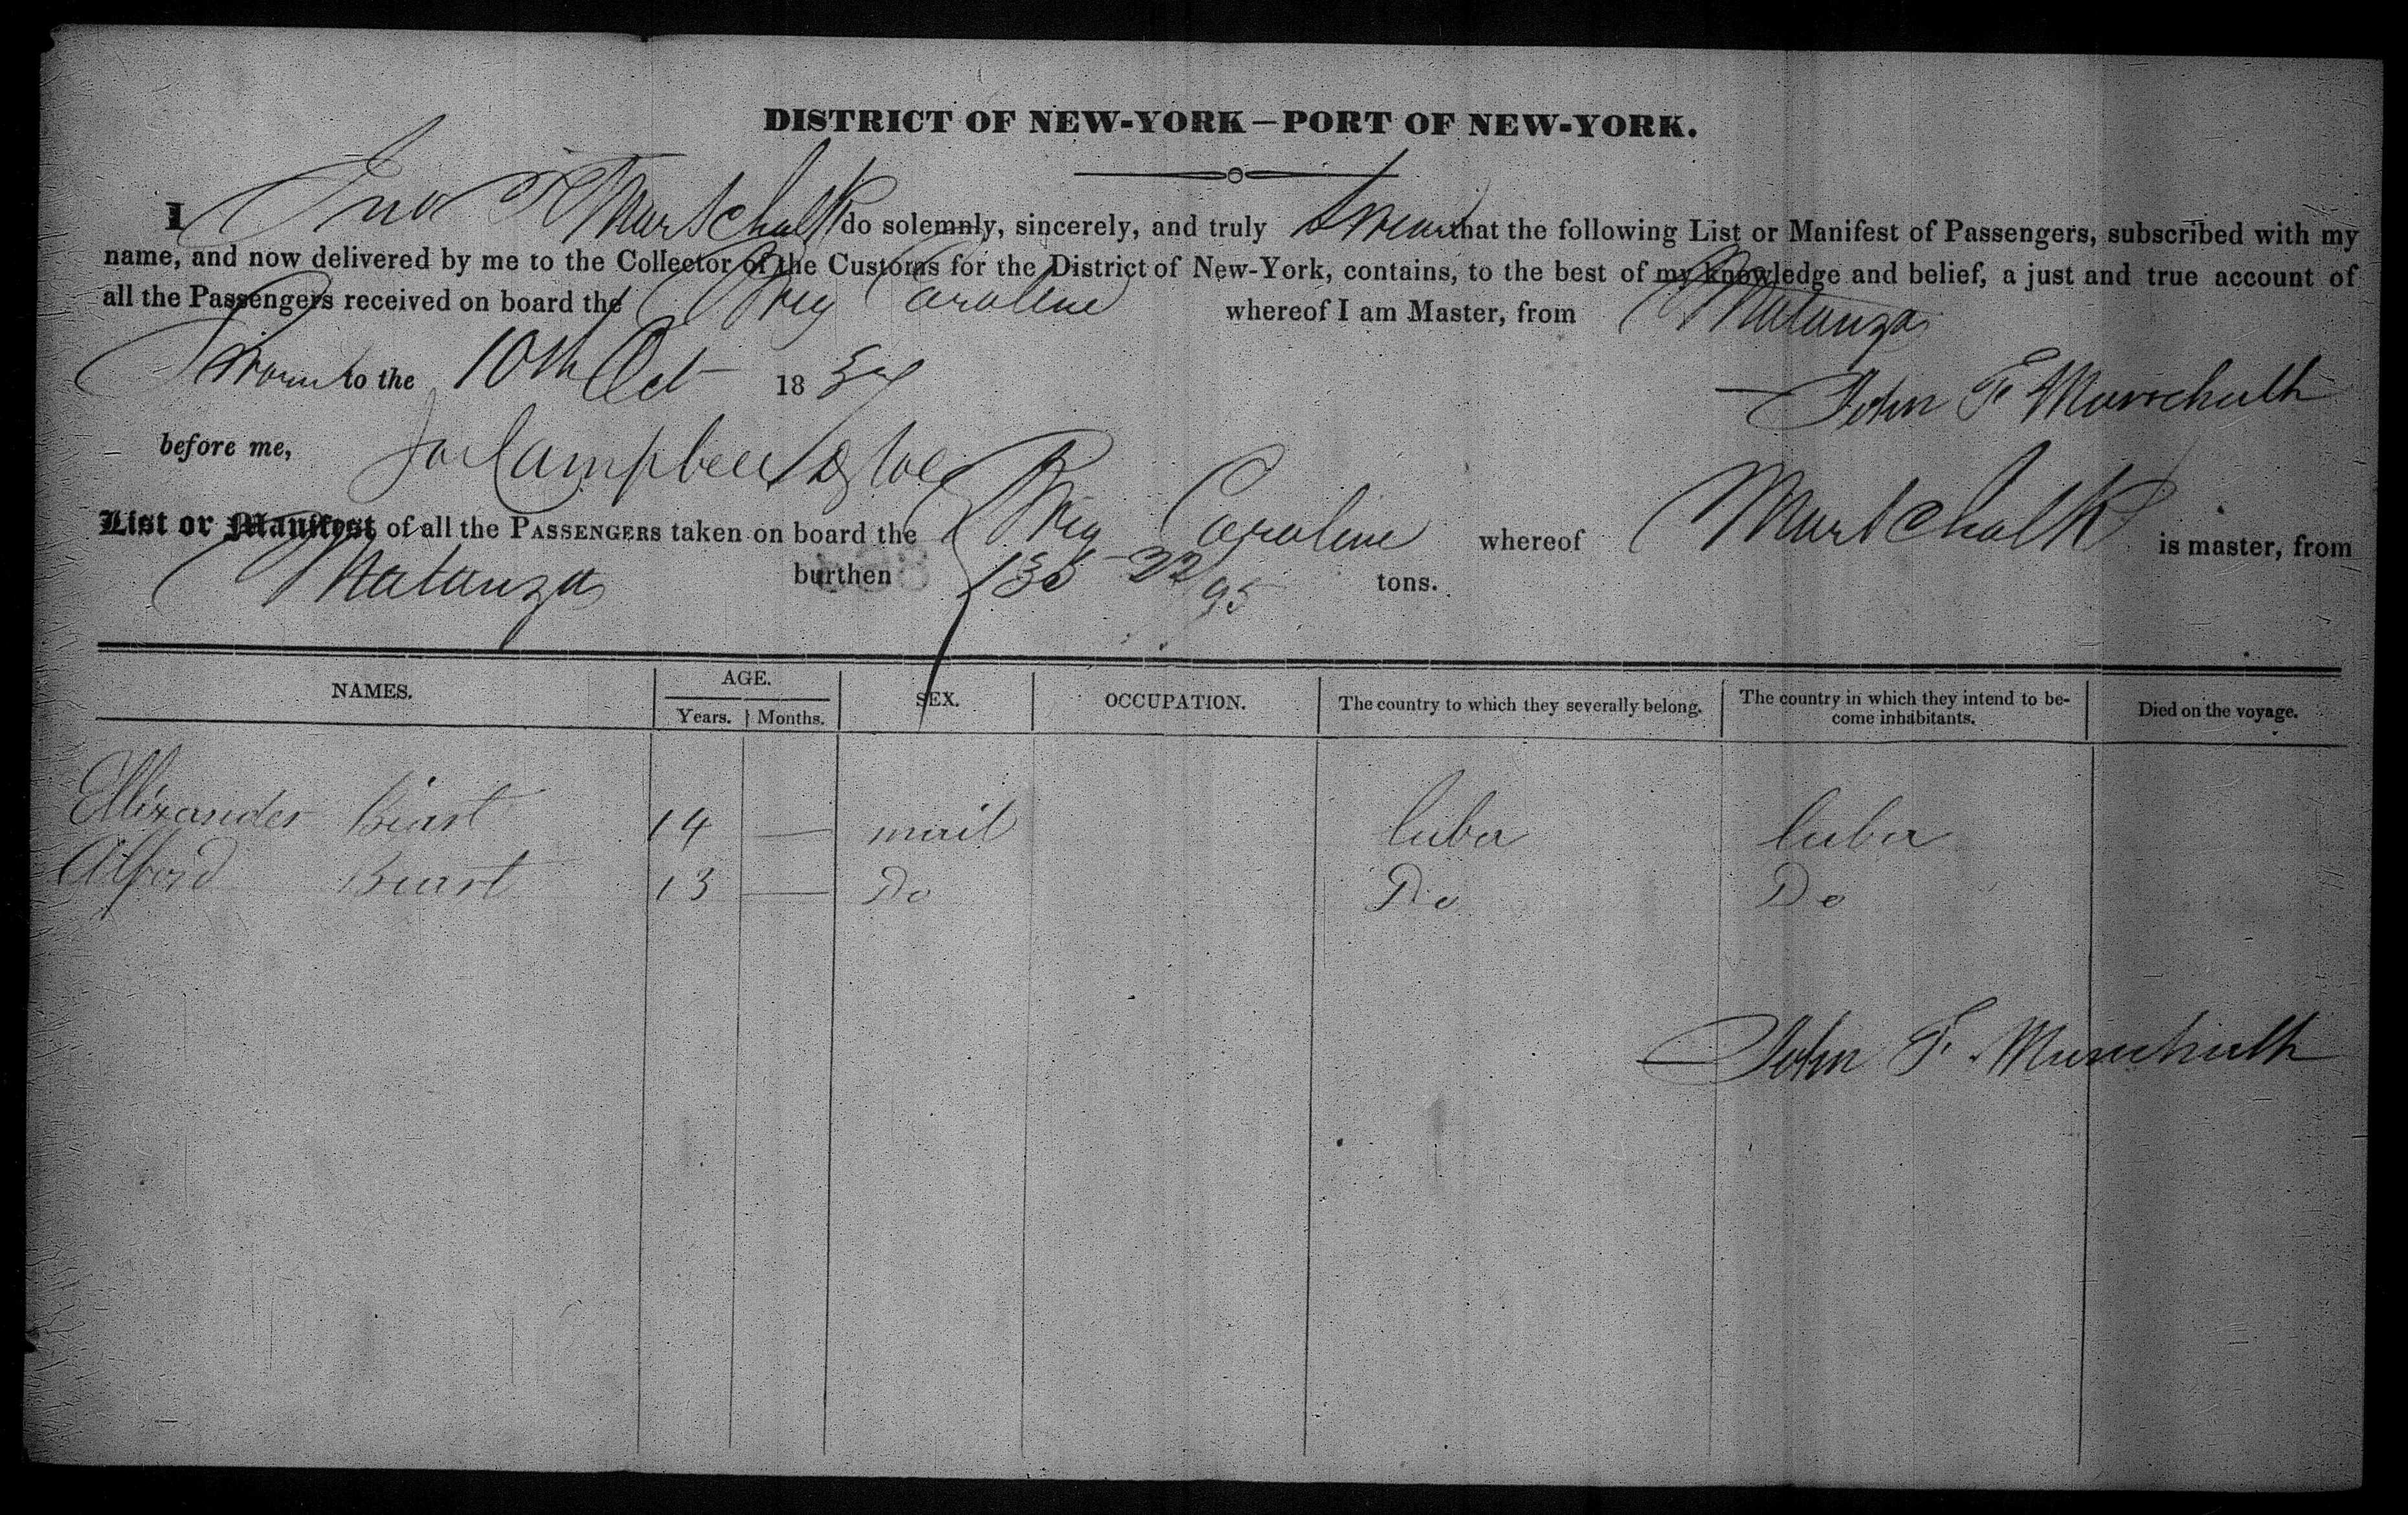 DISTRICT OF NEW-YORK—PORT OF NEW-YORK.
I Jno F Marschalk do solemnly, sincerely, and truly Swear that the following List or Manifest of Passengers, subscribed with my
name, and now delivered by me to the Collector of the Customs for the District of New-York, contains, to the best of my knowledge and belief, a just and true account of
all the Passengers received on board the Brig Caroline whereof I am Master, from Matanza
Sworn to the 10th Oct 18
John F Marschalk
before me, Campbell
List or Manifest of all the PASSENGERS taken on board the Brig Caroline whereof Marschalk is master, from
Matanza burthen 22/95 tons.
NAMES. AGE. Years. Months. SEX. OCCUPATION. The country to which they severally belong. The country in which they intend to be-
come inhabitants. Died on the voyage.
Ellixander 14 — mail Cuba Cuba
Alford 13 — Do Do Do
John F. Marschalk